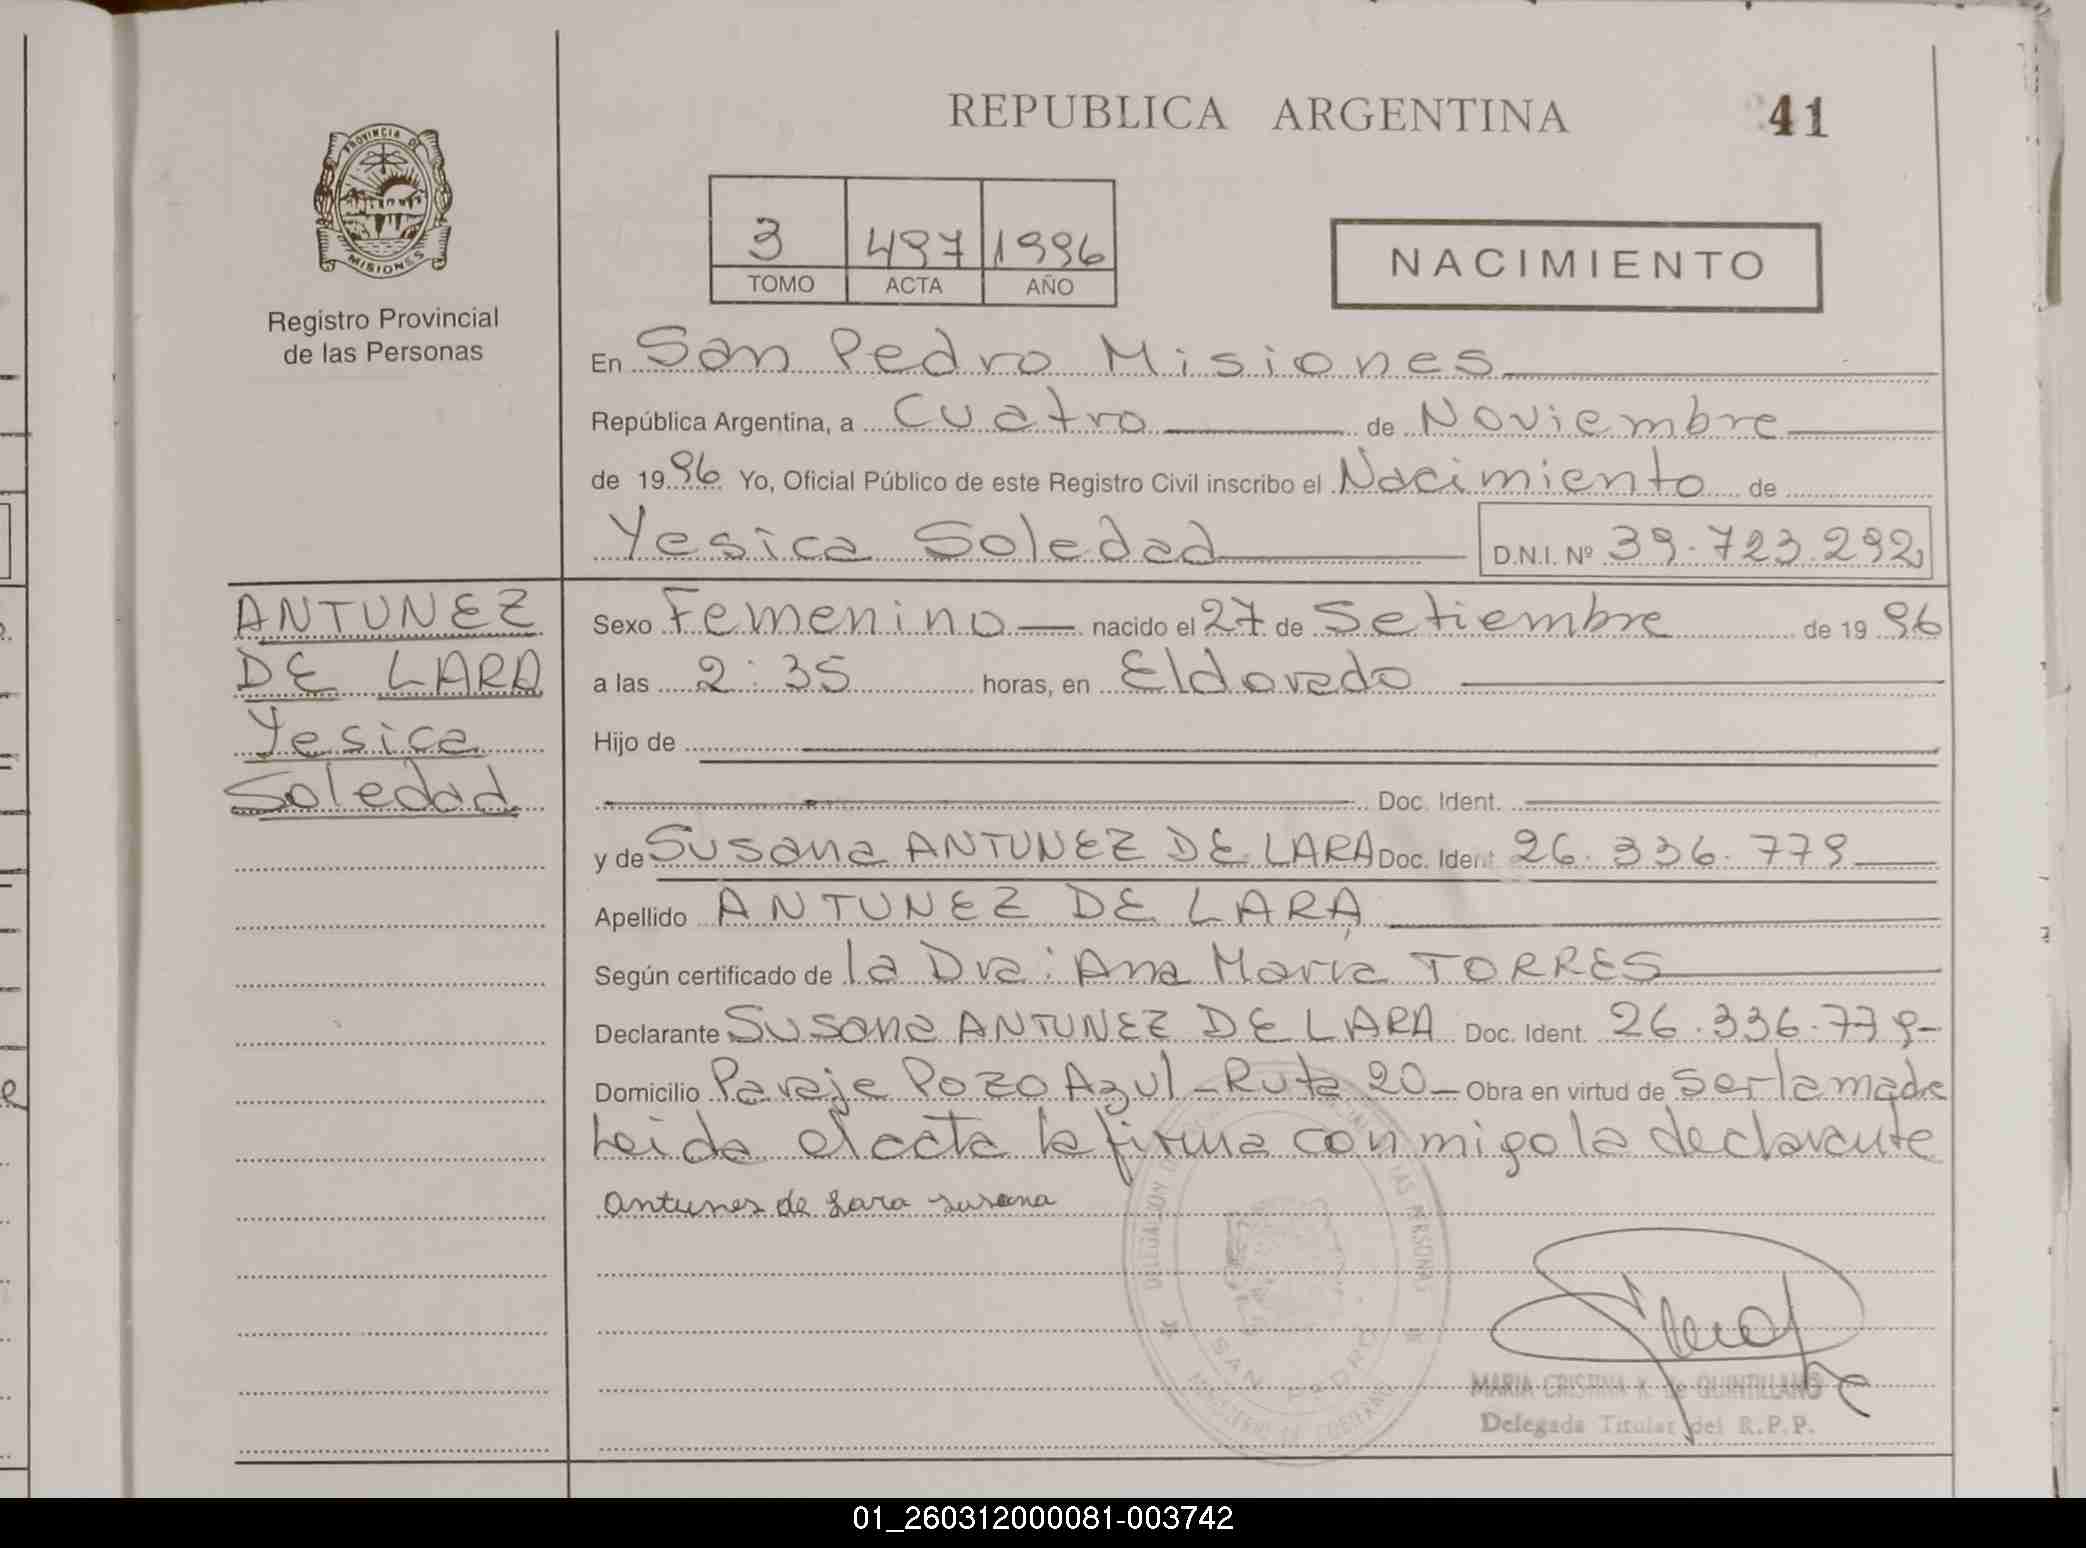 REPUBLICA ARGENTINA
41
PROVINCIA DE
MISIONES
Registro Provincial
de las Personas
3 497 1996
TOMO ACTA AÑO
NACIMIENTO
En San Pedro Misiones
República Argentina, a Cuatro de Noviembre
de 1996 Yo, Oficial Público de este Registro Civil inscribo el Nacimiento de
Yesica Soledad D.N.I. Nº 39.723.292
ANTUNEZ
DE LARA
Yesica
Soledad
Sexo Femenino nacido el 27 de Setiembre de 1996
a las 2:35 horas, en Eldorado
Hijo de
Doc. Ident.
y de Susana ANTUNEZ DE LARA Doc. Ident. 26.336.779
Apellido ANTUNEZ DE LARA
Según certificado de la Dra: Ana María TORRES
Declarante Susana ANTUNEZ DE LARA Doc. Ident. 26.336.779-
Domicilio Paraje Pozo Azul - Ruta 20 - Obra en virtud de ser la madre
Leida el acta la firma conmigo la declarante
Antunes de Lara Susana
SAN PEDRO
MINISTERIO DE GOBIERNO
MARIA CRISTINA K. de QUINTILLANO
Delegada Titular del R.P.P.
01_260312000081-003742